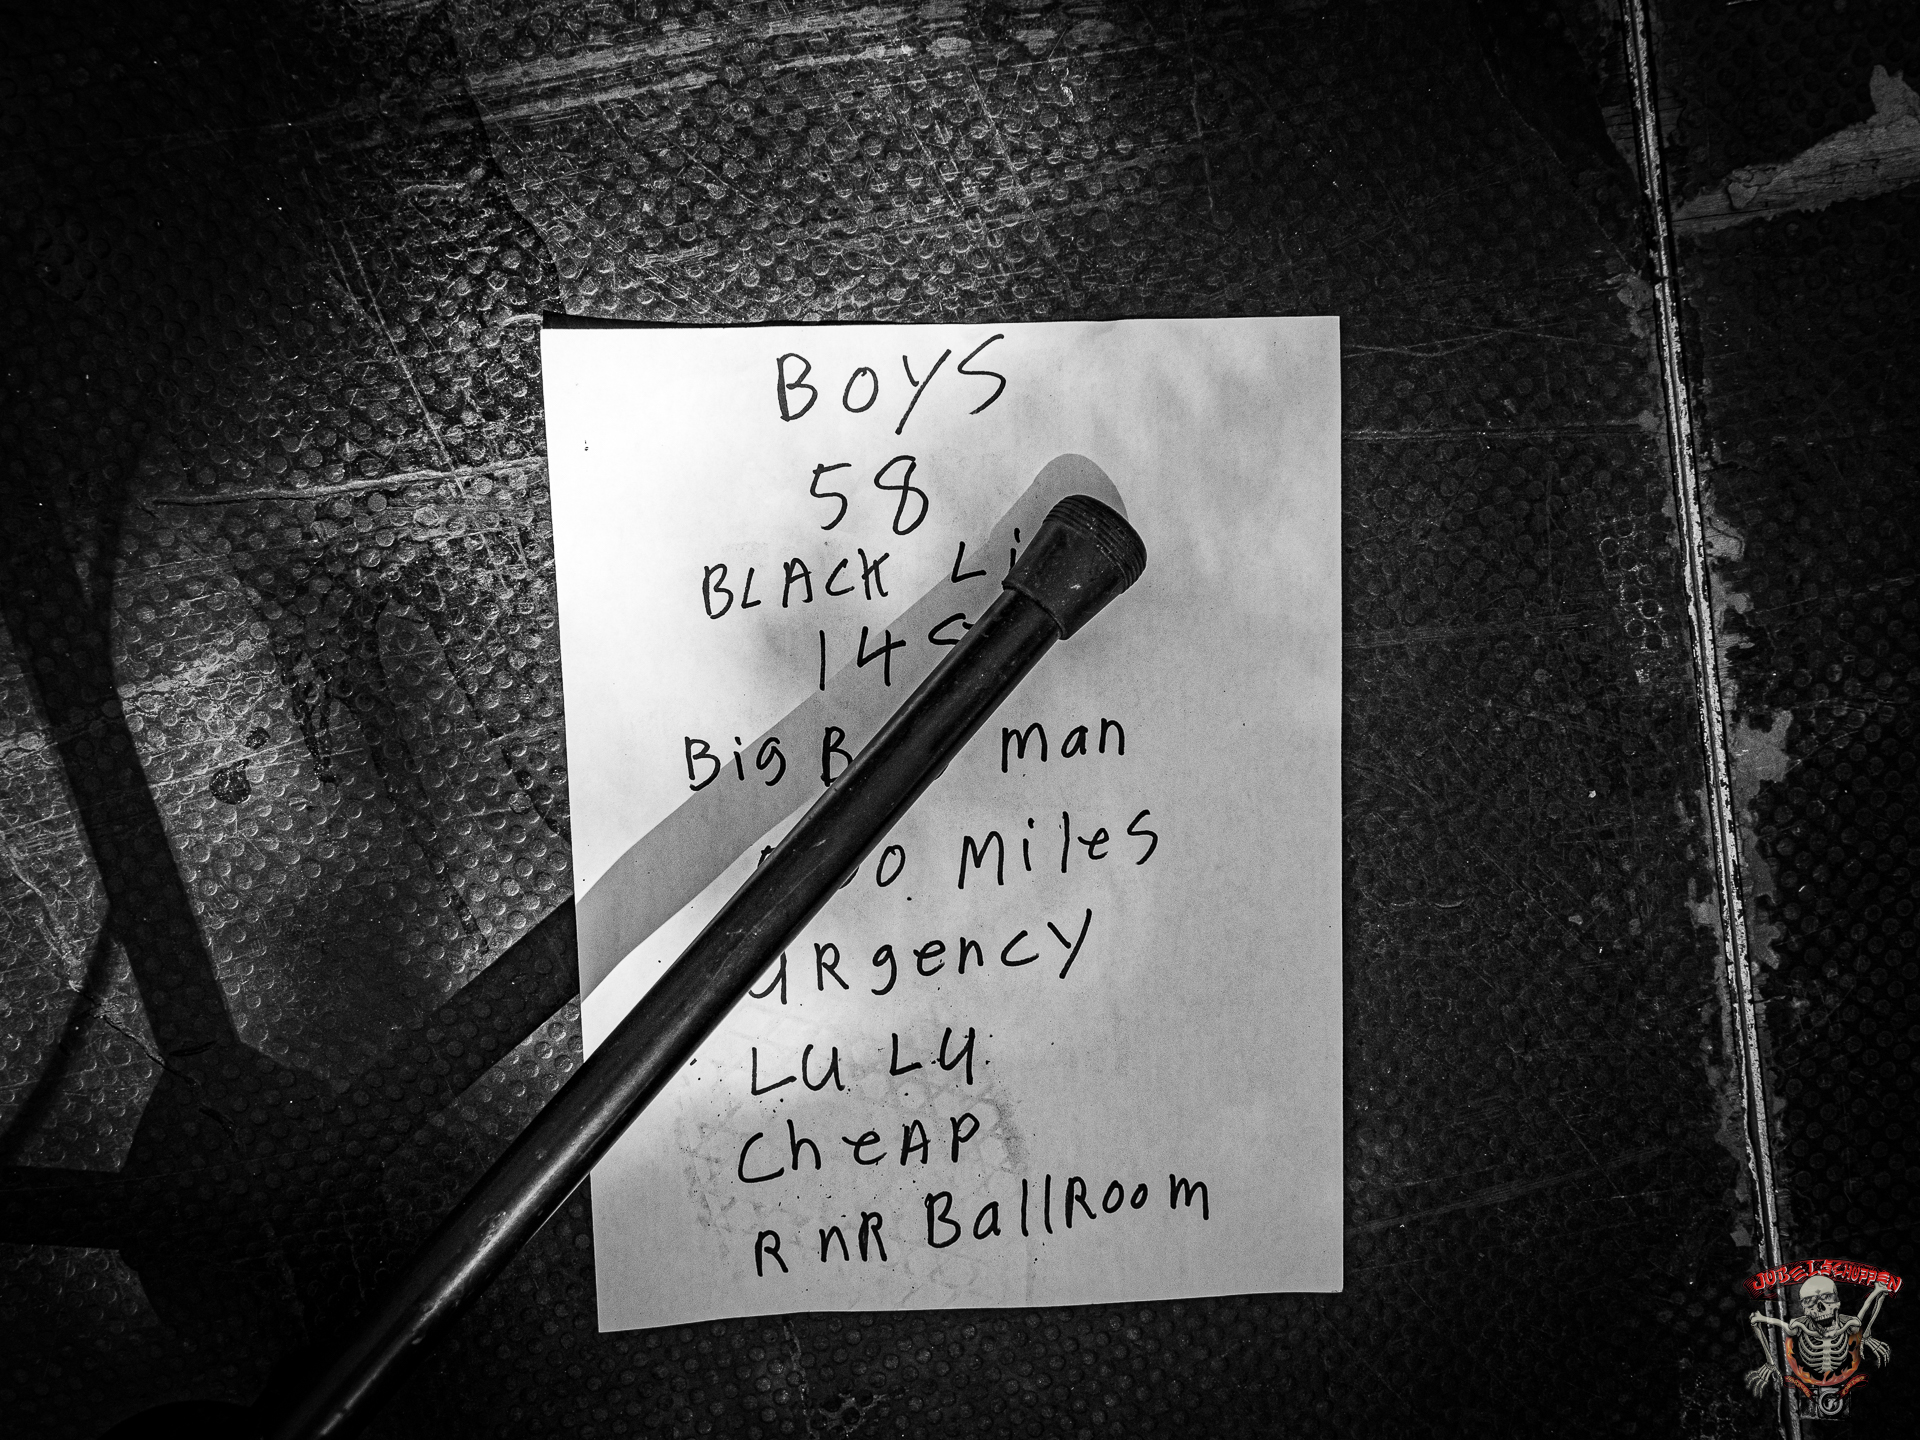 BOYS
58
BLACK
Big man
Miles
URgency
LU LU
CheAP
RnR BallRoom
JUBELSCHUPPEN